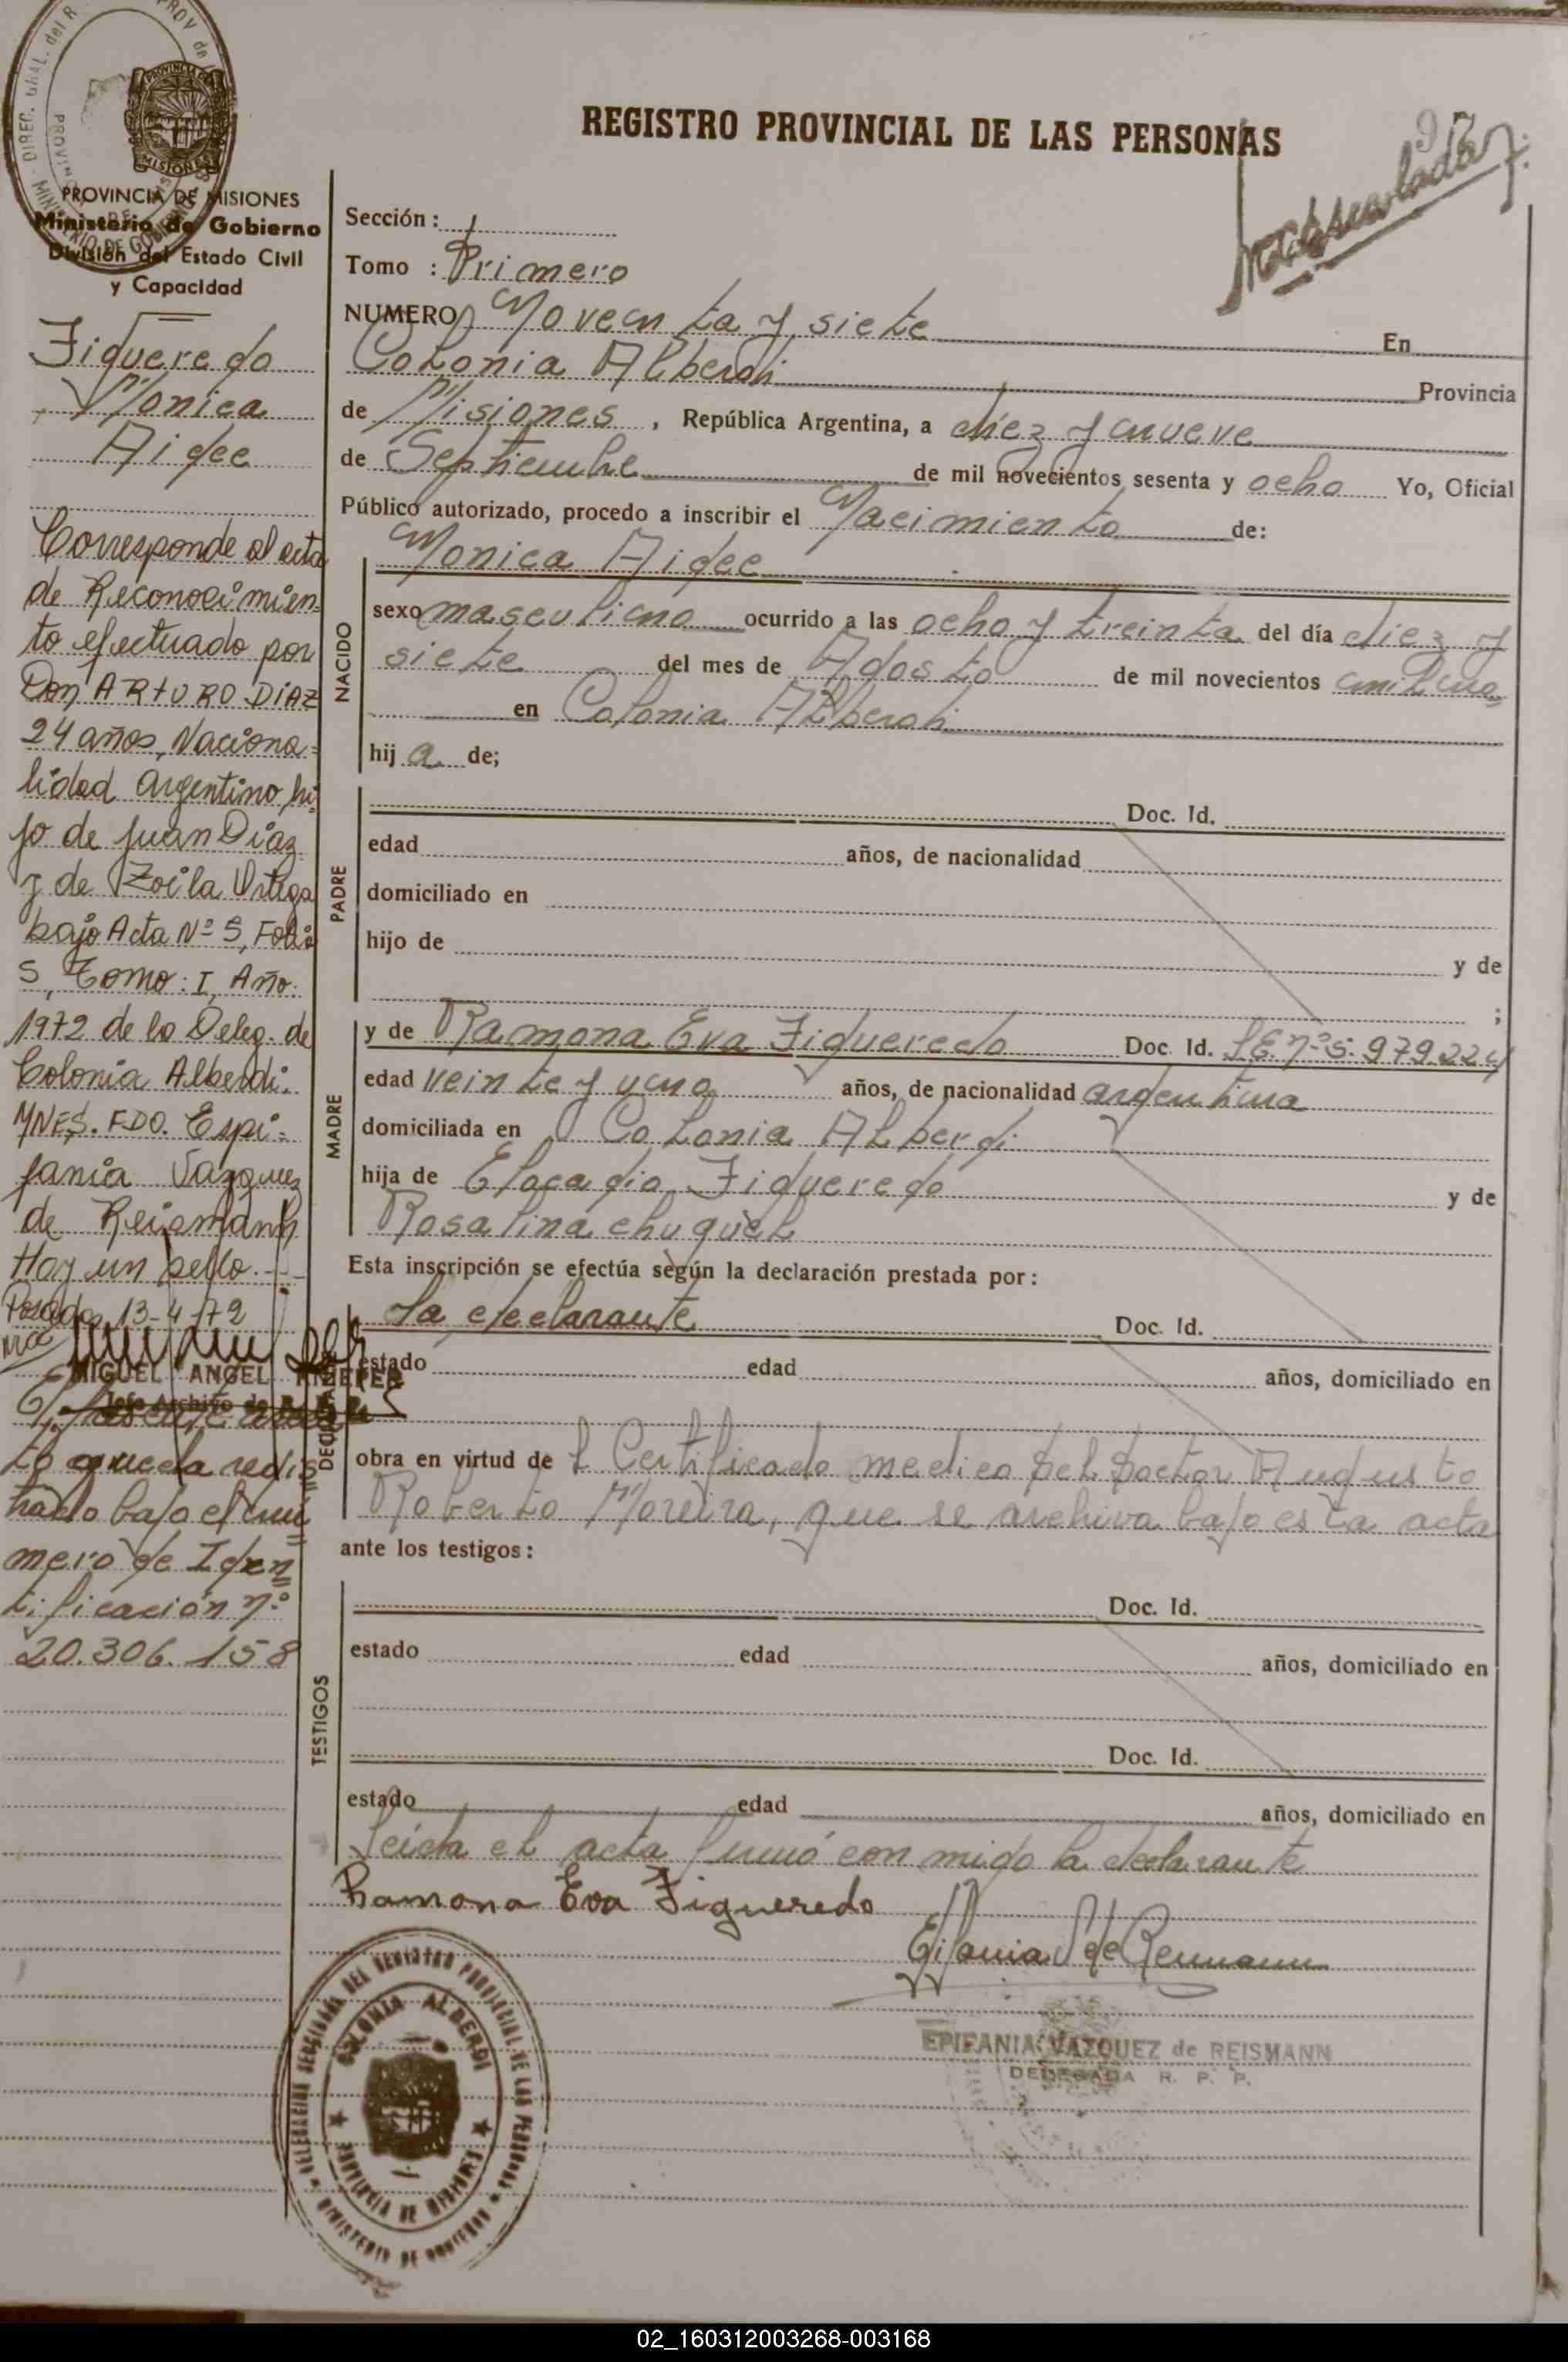 REGISTRO PROVINCIAL DE LAS PERSONAS
97
PROVINCIA DE MISIONES
Ministerio de Gobierno
División del Estado Civil
y Capacidad
Figueredo
Monica
Aidee
Corresponde al acta
de Reconocimien-
to efectuado por
Don ARTURO DIAZ
24 años, Naciona=
lidad Argentino hi-
jo de Juan Diaz
y de Zoila Ortega
bajo Acta Nº 5, Folio
5, Tomo: I, Año:
1972 de la Deleg. de
Colonia Alberdi.
MNES. FDO. Epi=
fania Vazquez
de Reismann
Hay un sello.
Posadas 13-4-72
MIGUEL ANGEL
Jefe Archivo de
El presente
to queda regis
trado bajo el nú
mero de Iden
tificación nº
20.306.158
Sección: 1
Tomo : Primero
NUMERO Noventa y siete En
Colonia Alberdi Provincia
de Misiones, República Argentina, a diez y nueve
de Septiembre de mil novecientos sesenta y ocho Yo, Oficial
Público autorizado, procedo a inscribir el Nacimiento de:
NACIDO
Monica Aidee
sexo masculino ocurrido a las ocho y treinta del día diez y
siete del mes de Agosto de mil novecientos
en Colonia Alberdi
hija de;
PADRE
Doc. Id.
edad años, de nacionalidad
domiciliado en
hijo de y de
;
MADRE
y de Ramona Eva Figueredo Doc. Id. nº 5.979.224
edad veinte y uno años, de nacionalidad argentina
domiciliada en Colonia Alberdi
hija de Elocadio Figueredo y de
Rosalina chuquel
Esta inscripción se efectúa según la declaración prestada por:
La declarante Doc. Id.
estado edad años, domiciliado en
obra en virtud del Certificado medico del Doctor Augusto
Roberto Moreira, que se archiva bajo esta acta
ante los testigos:
TESTIGOS
Doc. Id.
estado edad años, domiciliado en
Doc. Id.
estado edad años, domiciliado en
Leida el acta firmó con migo la declarante
Ramona Eva Figueredo
Epifania V de Reismann
EPIFANIA VAZQUEZ de REISMANN
DELEGADA R. P. P.
COLONIA ALBERDI
PROVINCIA DE MISIONES
MINISTERIO DE GOBIERNO
02_160312003268-003168